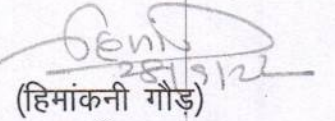 28/9/22
(हिमांकनी गौड़)